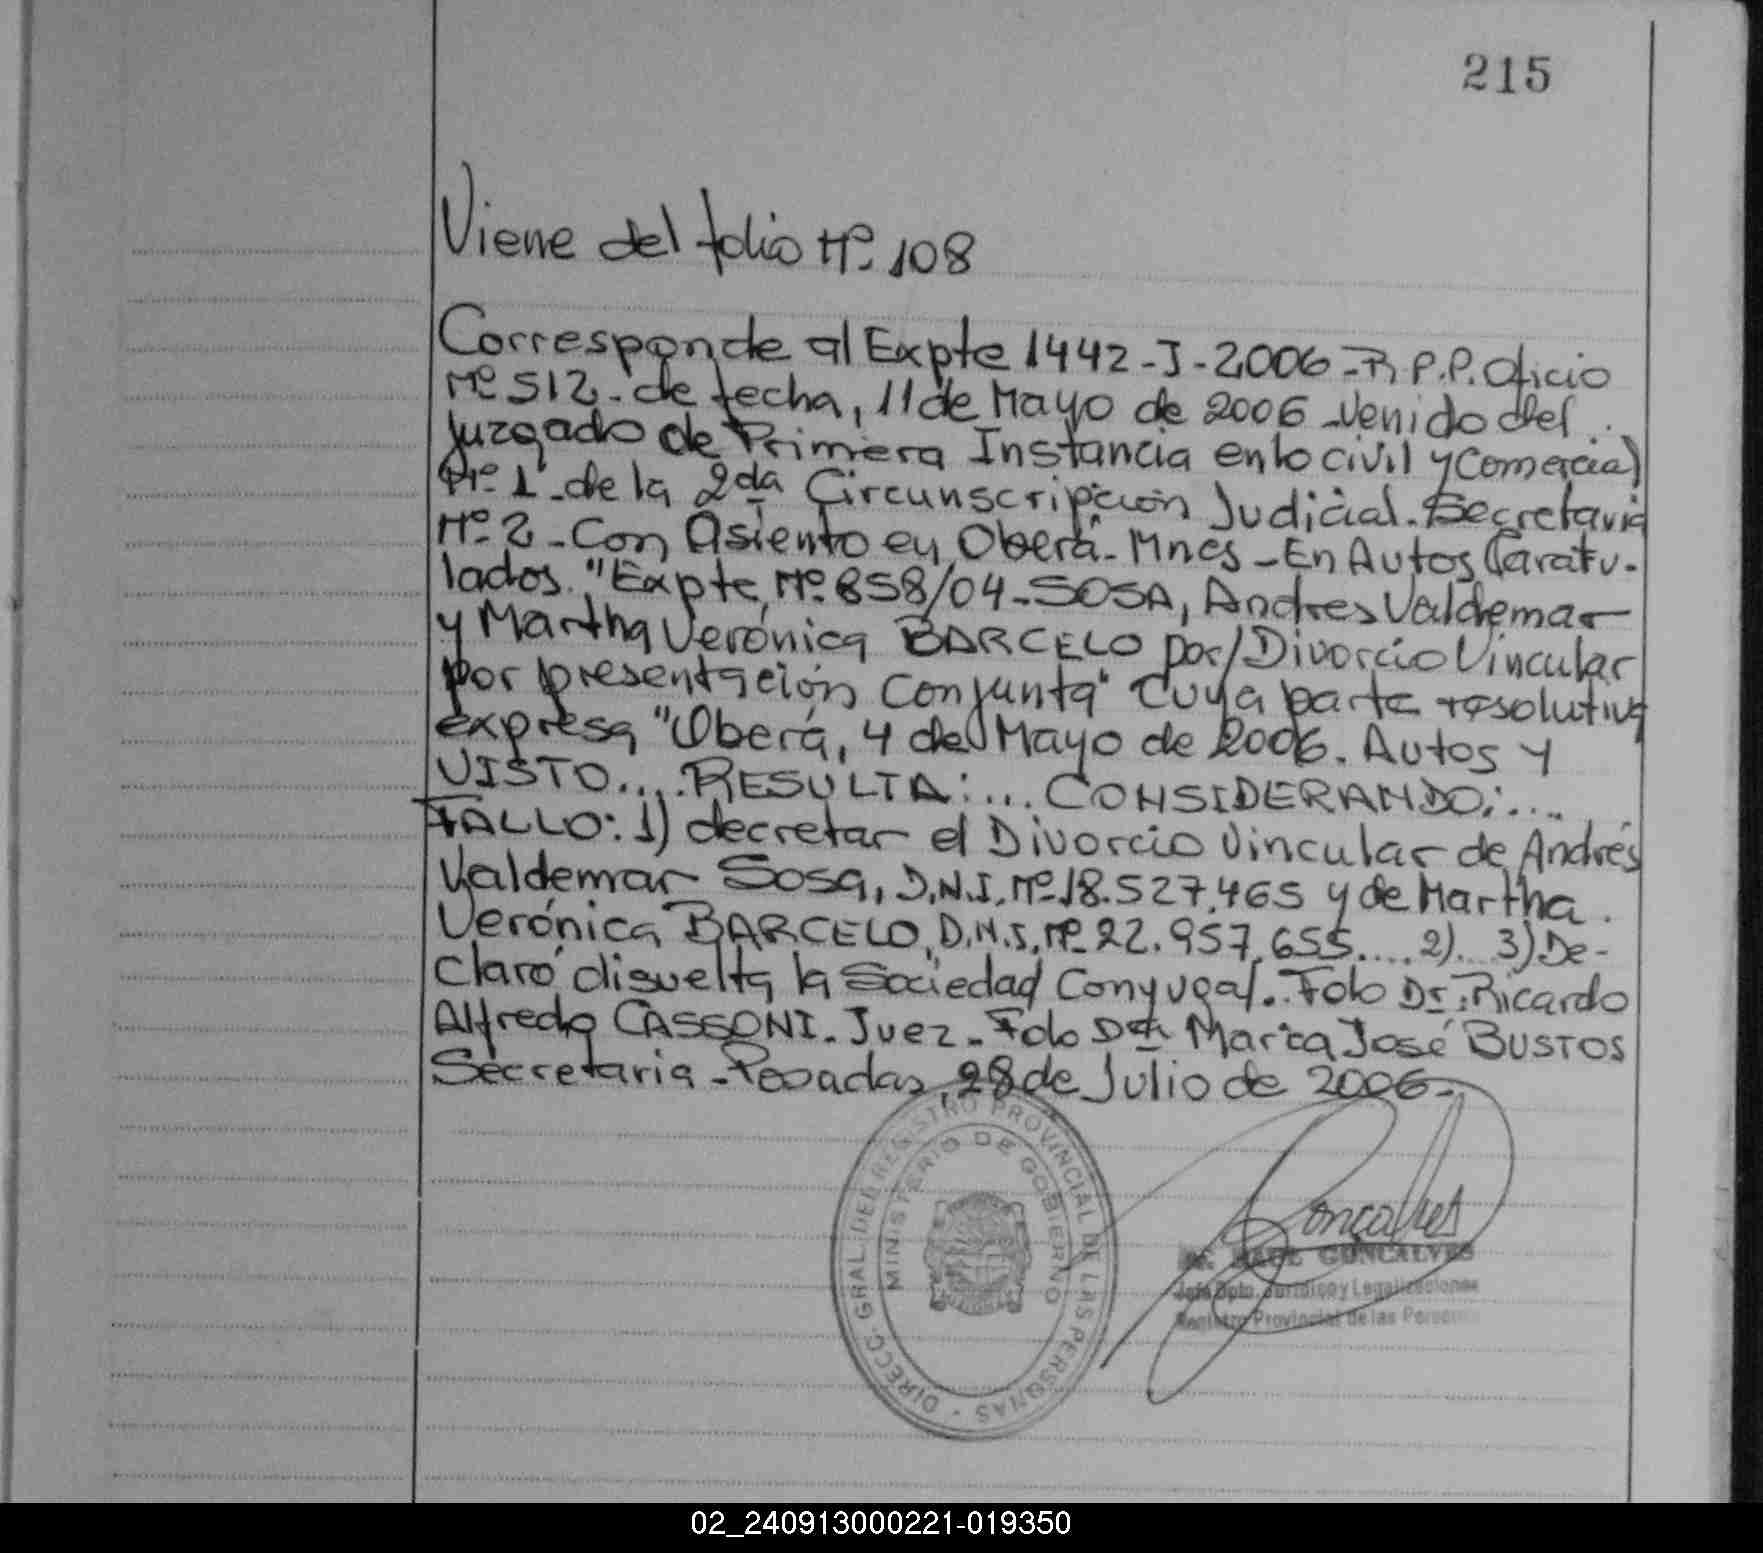 215
Viene del folio Nº 108
Corresponde al Expte 1442-J-2006-R.P.P. Oficio
Nº 512- de fecha, 11 de Mayo de 2006 -venido del
Juzgado de Primera Instancia en lo civil y Comercial
Nº 1 -de la 2da Circunscripción Judicial. Secretaria
Nº 2 -Con Asiento en Oberá- Mnes -En Autos Caratu-
lados. "Expte Nº 858/04-SOSA, Andres Valdemar
y Martha Verónica BARCELO por/Divorcio Vincular
por presentación conjunta" cuya parte resolutiva
expresa "Oberá, 4 de Mayo de 2006. Autos y
VISTO.... RESULTA:... CONSIDERANDO:....
FALLO: 1) decretar el Divorcio Vincular de Andrés
Valdemar Sosa, D.N.I. Nº 18.527.465 y de Martha
Verónica BARCELO, D.N.I. Nº 22.957.655.... 2)... 3) De-
claro disuelta la Sociedad Conyugal. Fdo Dr. Ricardo
Alfredo CASSONI. Juez. Fdo Dra Maria José BUSTOS
Secretaria -Posadas, 28 de Julio de 2006-
DIRECC. GRAL. DEL REGISTRO PROVINCIAL DE LAS PERSONAS -
MINISTERIO DE GOBIERNO
Goncalves
Dr. RAUL GONCALVES
Jefe Dpto. Jurídico y Legalizaciones
Registro Provincial de las Personas
02_240913000221-019350